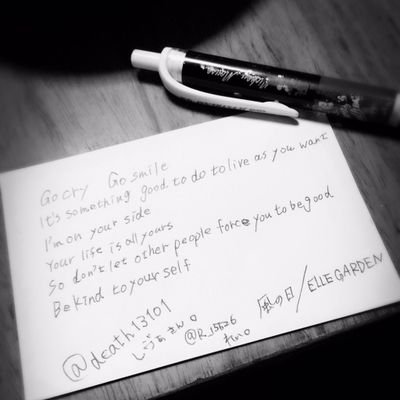 Mickey Mouse
Go cry Go smile
It's something good to do to live as you want
I'm on your side
Your life is all yours
So don't let other people force you to be good
Be kind to your self
風の日/ELLEGARDEN
@death13101
@R_15626